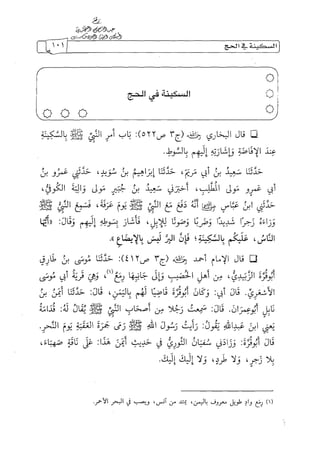 السكينة في الحج
١٠١
السكينة في الحج
قال البخاري رحمه الله (ج٣ ص٥٢٢): بَاب أَمْرِ النَّبِيِّ ﷺ بِالسَّكِينَةِ
عِنْدَ الإِفَاضَةِ وَإِشَارَتِهِ إِلَيْهِمْ بِالسَّوْطِ.
حَدَّثَنَا سَعِيدُ بنُ أَبِي مَرْيَمَ، حَدَّثَنَا إِبْرَاهِيمُ بنُ سُوَيْدٍ، حَدَّثَنِي عَمْرُو بنُ
أَبِي عَمْرٍو مَوْلَى المُطَّلِبِ، أَخْبَرَنِي سَعِيدُ بنُ جُبَيْرٍ مَوْلَى وَالِبَةَ الكُوفِيُّ،
حَدَّثَنِي ابنُ عَبَّاسٍ أَنَّهُ دَفَعَ مَعَ النَّبِيِّ ﷺ يَوْمَ عَرَفَةَ، فَسَمِعَ النَّبِيُّ ﷺ
وَرَاءَهُ زَجْرًا شَدِيدًا وَضَرْبًا وَصَوْتًا لِلإِبِلِ، فَأَشَارَ بِسَوْطِهِ إِلَيْهِمْ وَقَالَ: «أَيُّهَا
النَّاسُ، عَلَيْكُمْ بِالسَّكِينَةِ؛ فَإِنَّ البِرَّ لَيْسَ بِالإِيضَاعِ».
قال الإمام أحمد رحمه الله (ج٣ ص٤١٢): حَدَّثَنَا مُوسَى بنُ طَارِقٍ
أَبُوقُرَّةَ الزَّبِيدِيُّ، مِنْ أَهْلِ الحُصَيْبِ وَإِلَى جَانِبِهَا رِمَعٌ(١)، وَهِيَ قَرْيَةُ أَبِي مُوسَى
الأَشْعَرِيِّ. قَالَ أَبِي: وَكَانَ أَبُوقُرَّةَ قَاضِيًا لَهُمْ بِاليَمَنِ، قَالَ: حَدَّثَنَا أَيْمَنُ بنُ
نَابِلٍ أَبُوعِمْرَانَ. قَالَ: سَمِعْتُ رَجُلًا مِنْ أَصْحَابِ النَّبِيِّ ﷺ يُقَالُ لَهُ: قُدَامَةُ
يَعْنِي ابنَ عَبْدِاللهِ يَقُولُ: رَأَيْتُ رَسُولَ اللهِ ﷺ رَمَى جَمْرَةَ العَقَبَةِ يَوْمَ النَّحْرِ.
قَالَ أَبُوقُرَّةَ: وَزَادَنِي سُفْيَانُ الثَّوْرِيُّ فِي حَدِيثِ أَيْمَنَ هَذَا: عَلَى نَاقَةٍ صَهْبَاءَ،
بِلا زَجْرٍ، وَلا طَرْدٍ، وَلا إِلَيْكَ إِلَيْكَ.
(١) رمع واد طويل معروف باليمن، يمتد من آنس، ويصب في البحر الأحمر.